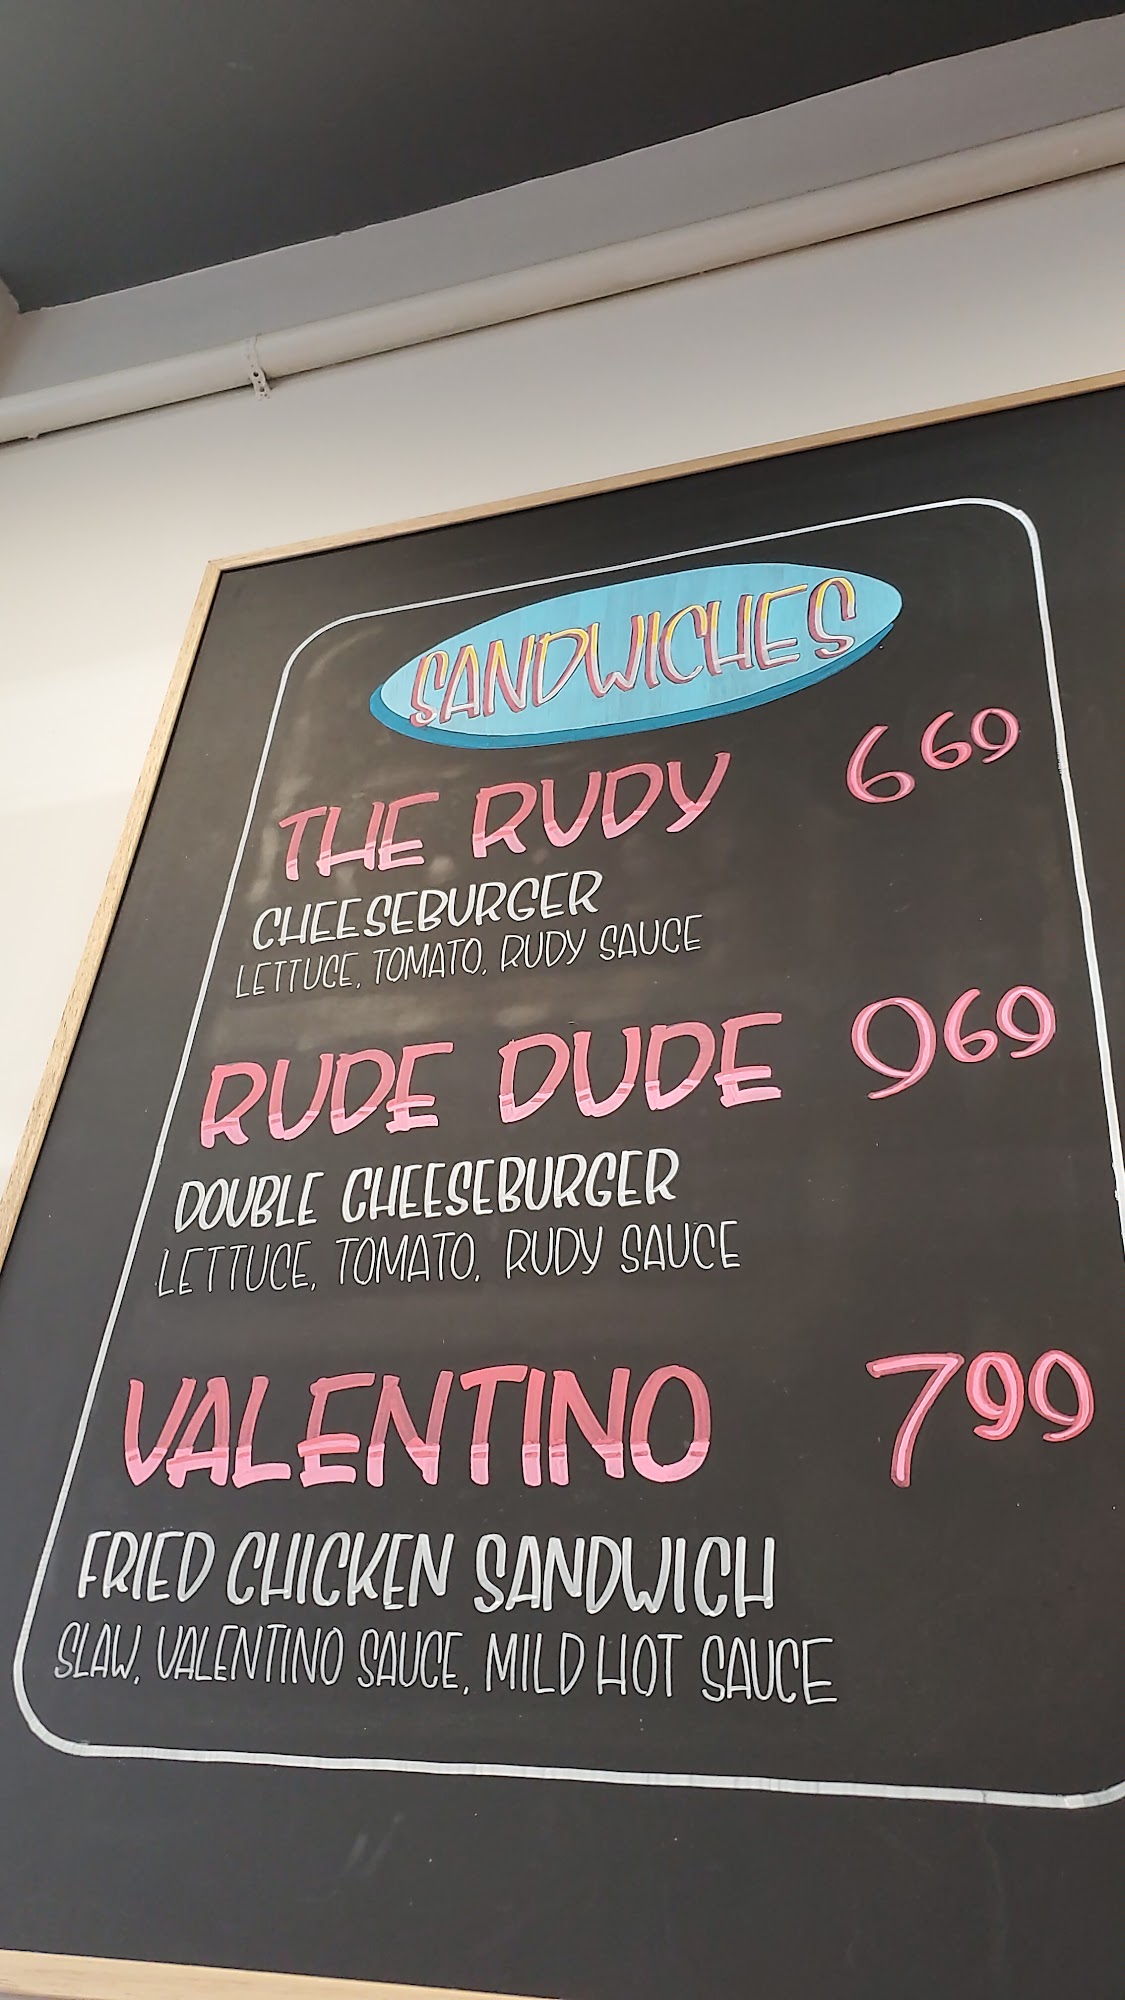 SANDWICHES
THE RUDY 669
CHEESEBURGER
LETTUCE, TOMATO, RUDY SAUCE
RUDE DUDE 969
DOUBLE CHEESEBURGER
LETTUCE, TOMATO, RUDY SAUCE
VALENTINO 799
FRIED CHICKEN SANDWICH
SLAW, VALENTINO SAUCE, MILD HOT SAUCE